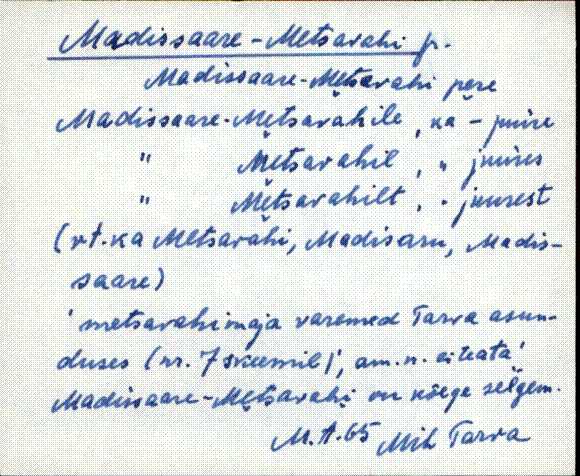 Madissaare-Metsavahi p.
Madissaare-Metsavahi pere
Madissaare-Metsavahile, ka - juure
" Metsavahil, " juures
" Metsavahilt, " juurest
(vt. ka Metsavahi, Madisaru, Madis-
saare)
'metsavahimaja varemed Tarva asun-
duses (nr. 7 skeemil)', am. n. ei teata'
Madissaare-Metsavahi on kõige selgem.
M.A. 65 Mih Tarva